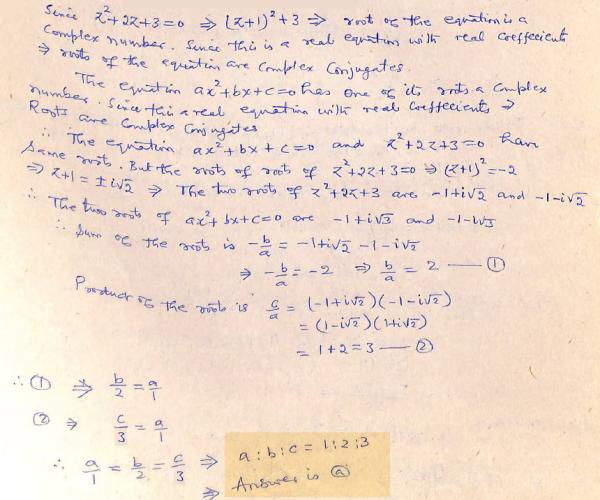 Since z²+2z+3=0 ⇒ (z+1)²+3 ⇒ root of the equation is a
Complex number. Since this is a real equation with real coeffecients
⇒ roots of the equation are Complex Conjugates.
The equation ax²+bx+c=0 has one of its roots a Complex
number. Since this a real equation with real Coeffecients ⇒
Roots are Complex Conjugates
∴ The equation ax²+bx+c=0 and z²+2z+3=0 have
Same roots. But the roots of roots of z²+2z+3=0 ⇒ (z+1)²=-2
⇒ z+1 = ±i√2 ⇒ The two roots of z²+2z+3 are -1+i√2 and -1-i√2
∴ The two roots of ax²+bx+c=0 are -1+i√3 and -1-i√3
∴ Sum of the roots is -b/a = -1+i√2 -1-i√2
⇒ -b/a = -2 ⇒ b/a = 2 — ①
Product of the roots is c/a = (-1+i√2)(-1-i√2)
= (1-i√2)(1+i√2)
= 1+2 = 3 — ②
∴ ① ⇒ b/2 = a/1
② ⇒ c/3 = a/1
∴ a/1 = b/2 = c/3 ⇒ a:b:c = 1:2:3
⇒ Answer is ⓐ